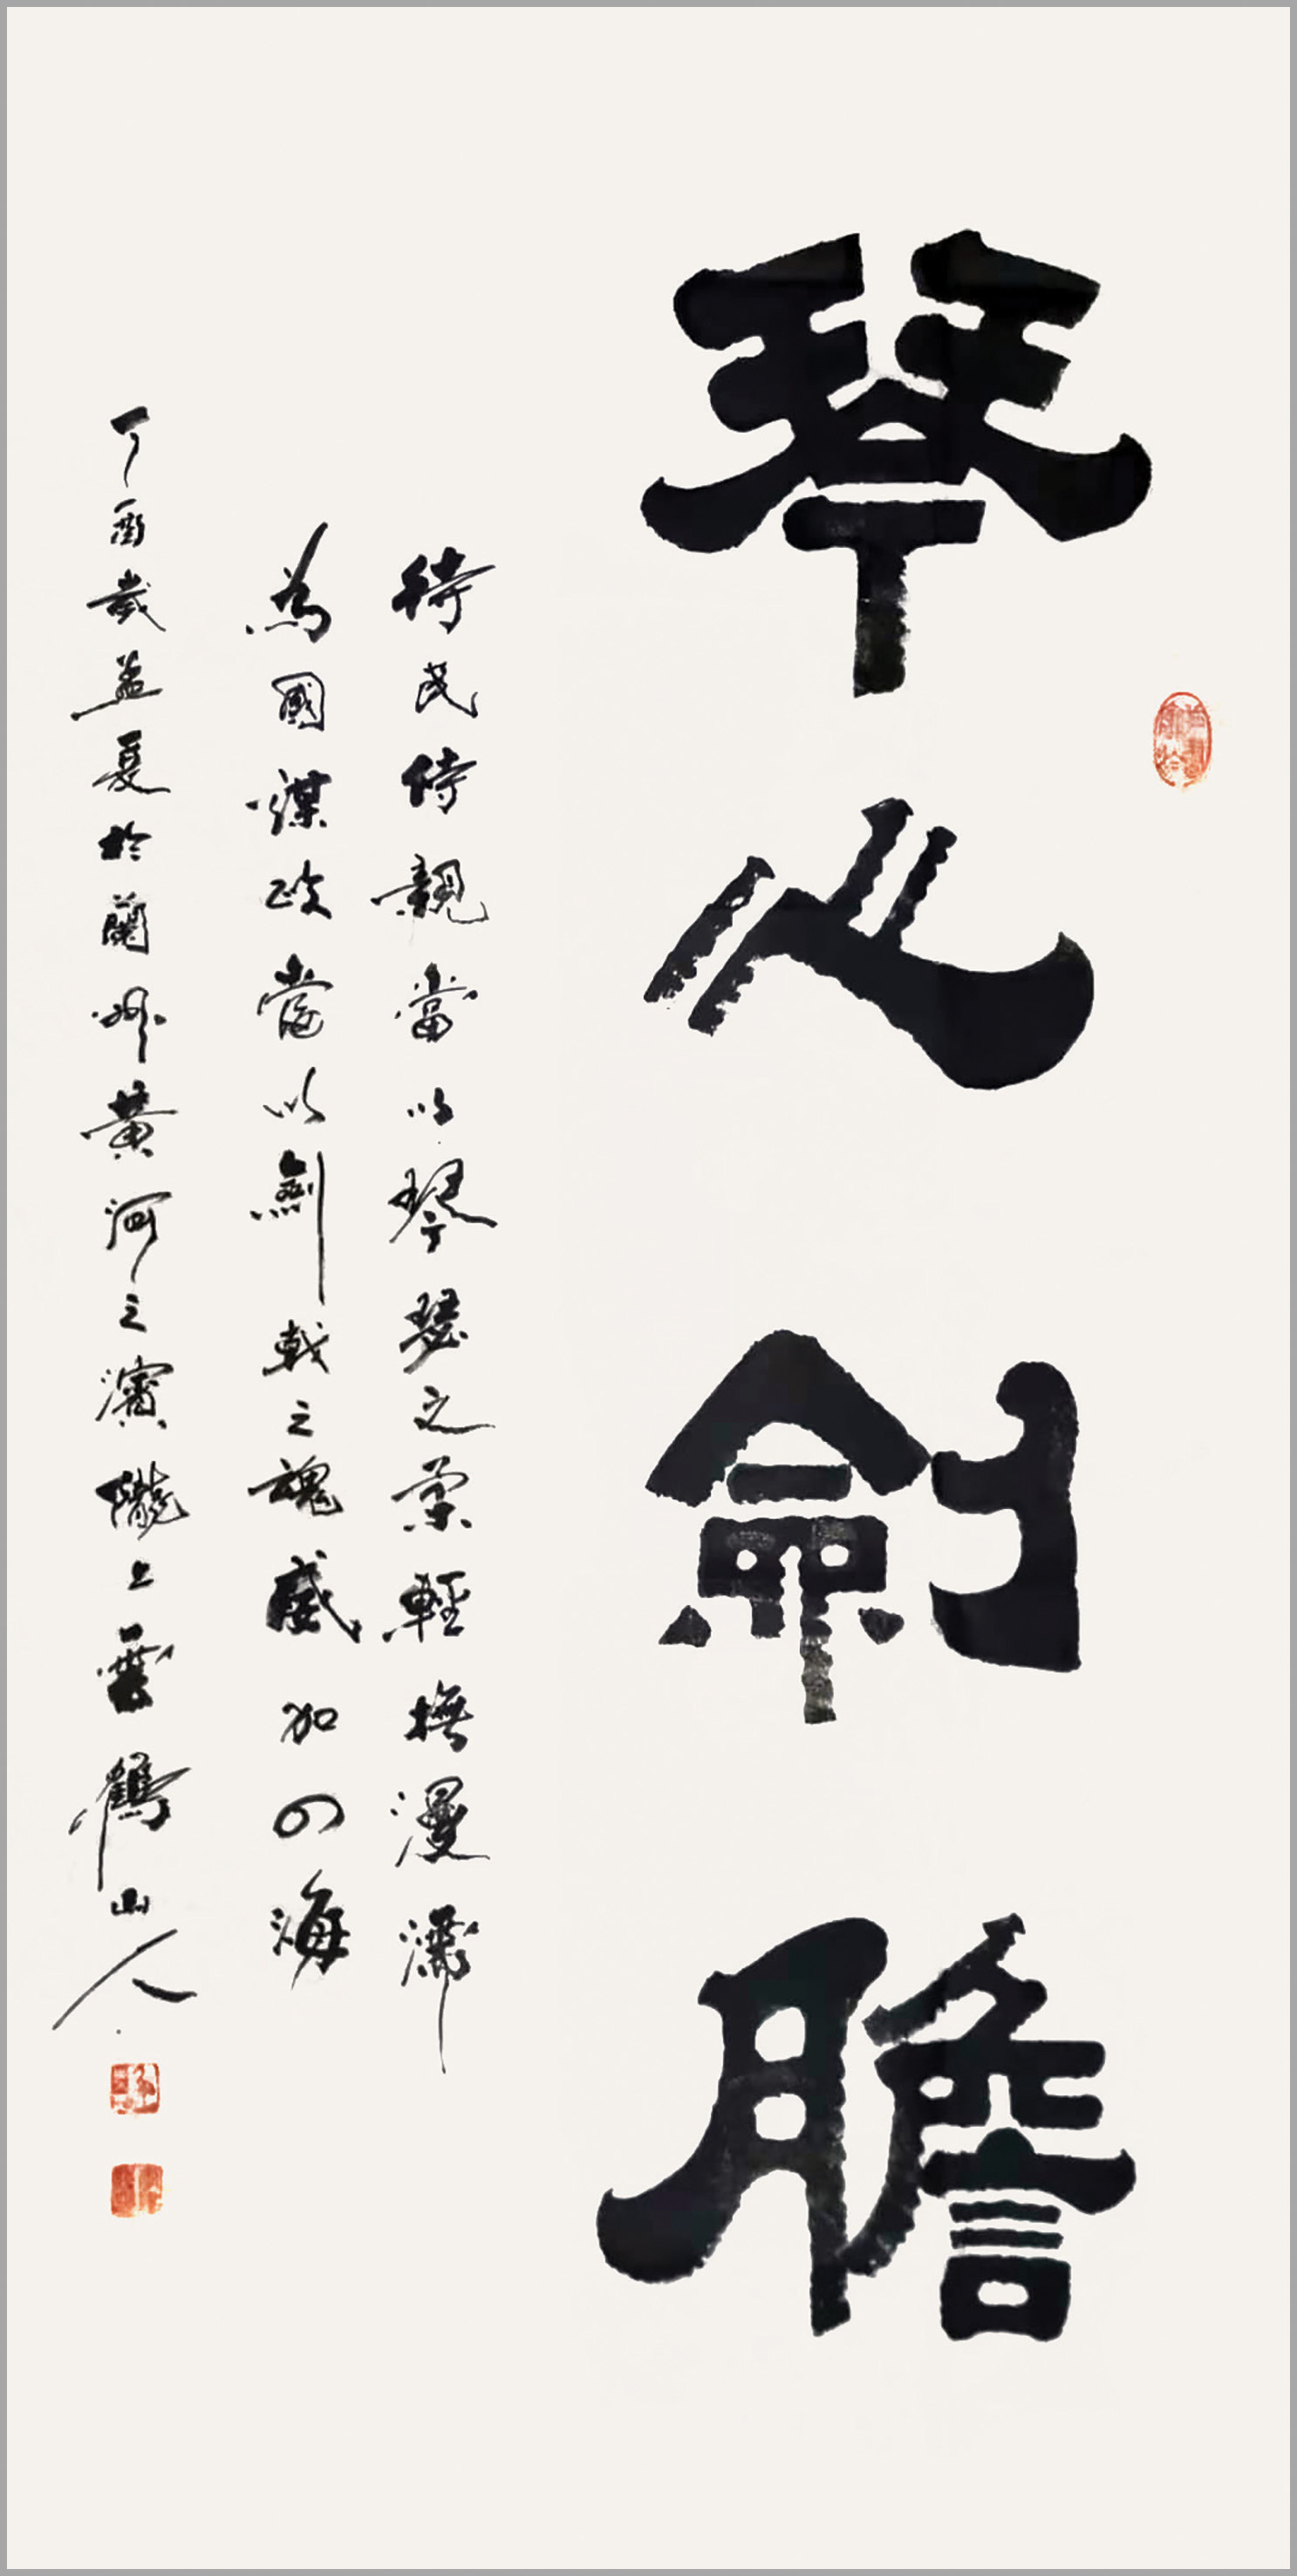 琴心劍膽
待民侍親當以琴瑟之柔輕撫漫瀟
為國謀政當以劍戟之魂威加四海
丁酉歲孟夏於蘭州黃河之濱隴上雲鶴山人